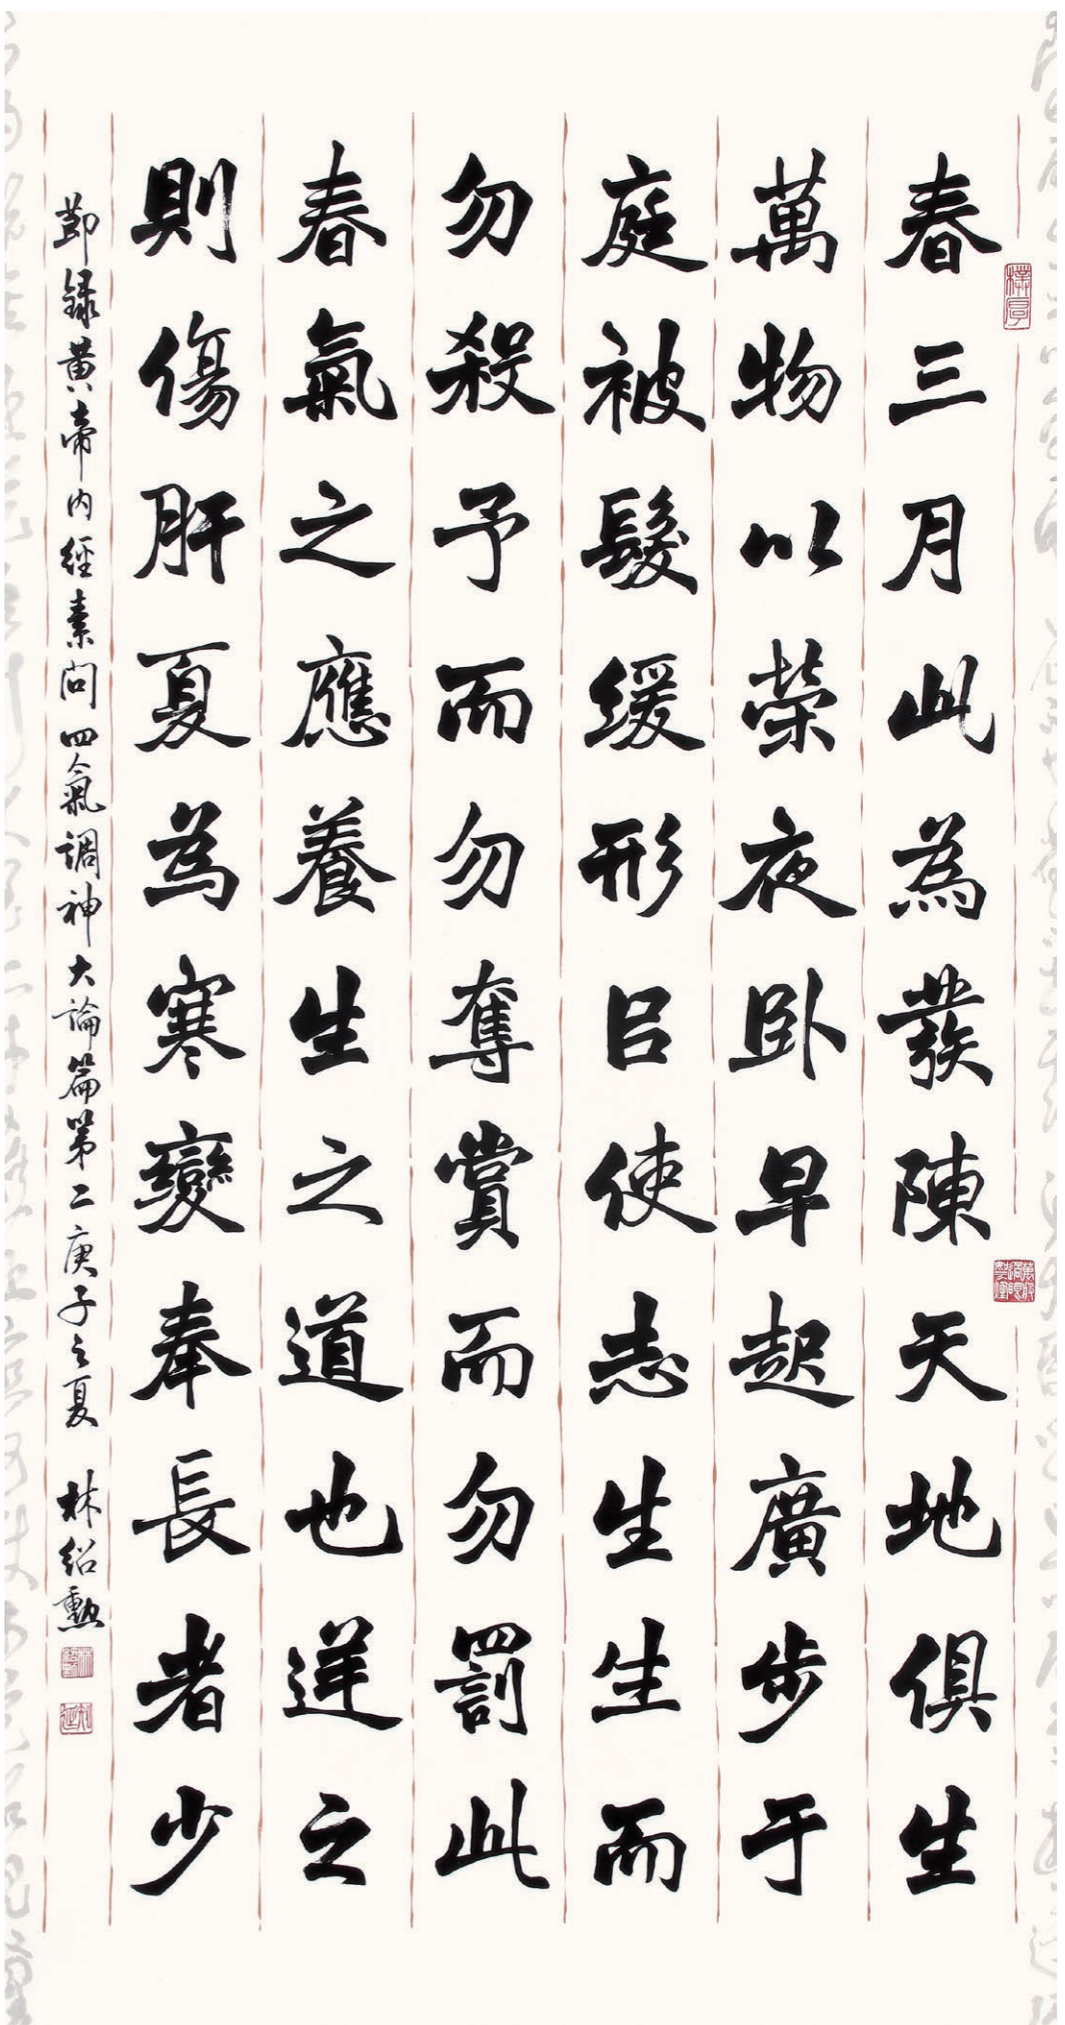 春三月此為發陳天地俱生
萬物以榮夜卧早起廣步于
庭被髮緩形㠯使志生生而
勿殺予而勿奪賞而勿罰此
春氣之應養生之道也逆之
則傷肝夏為寒變奉長者少
節録黄帝内經素問四氣調神大論篇第二庚子之夏 林紹勲